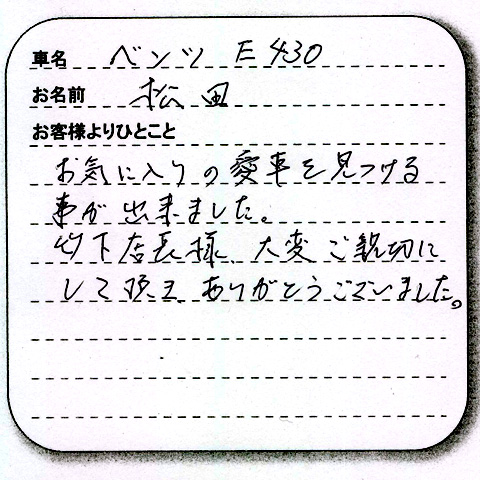 車名 ベンツ E430
お名前 松田
お客様よりひとこと
お気に入りの愛車を見つける
事が出来ました。
竹下店長様、大変ご親切に
して頂き ありがとうございました。